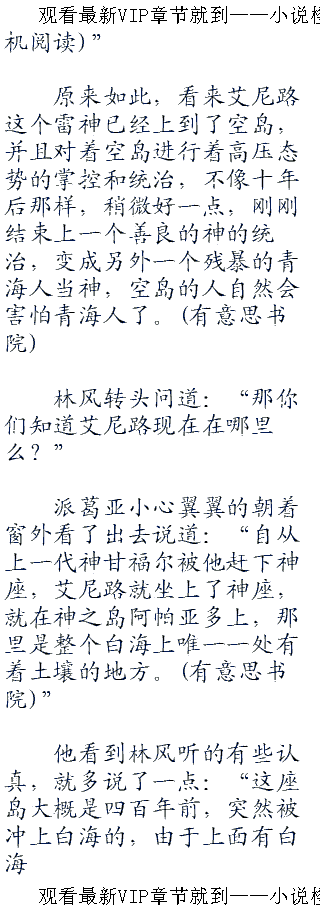 观看最新VIP章节就到——小说
机阅读)”
原来如此，看来艾尼路
这个雷神已经上到了空岛，
并且对着空岛进行着高压态
势的掌控和统治，不像十年
后那样，稍微好一点，刚刚
结束上一个善良的神的统
治，变成另外一个残暴的青
海人当神，空岛的人自然会
害怕青海人了。(有意思书
院)
林风转头问道：“那你
们知道艾尼路现在在哪里
么？”
派葛亚小心翼翼的朝着
窗外看了出去说道：“自从
上一代神甘福尔被他赶下神
座，艾尼路就坐上了神座，
就在神之岛阿帕亚多上，那
里是整个白海上唯一一处有
着土壤的地方。(有意思书
院)”
他看到林风听的有些认
真，就多说了一点：“这座
岛大概是四百年前，突然被
冲上白海的，由于上面有白
海
观看最新VIP章节就到——小说